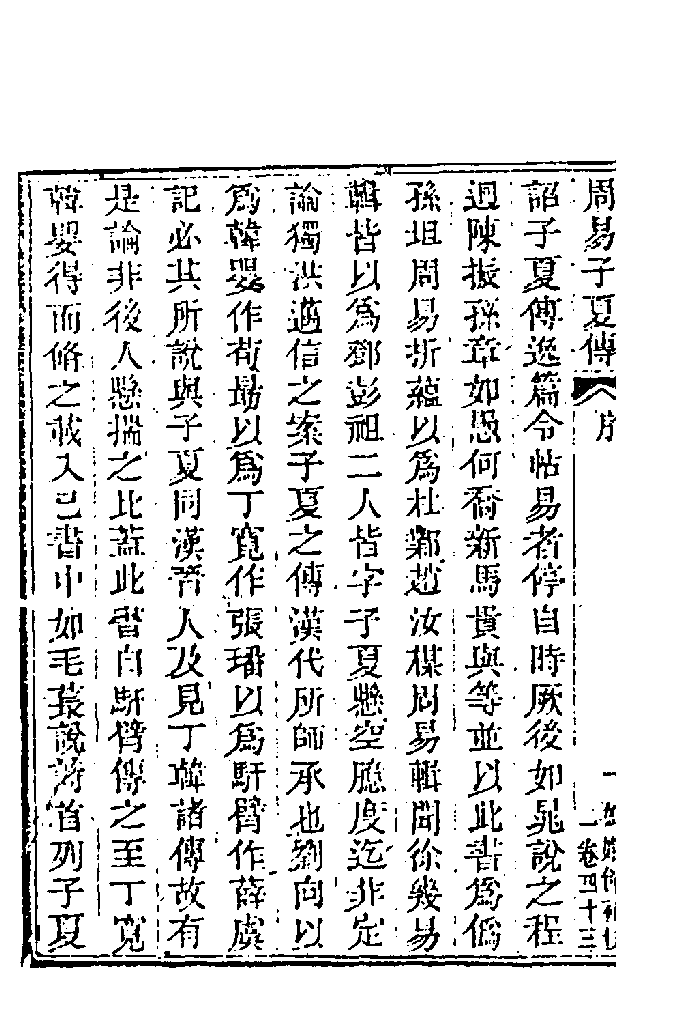 周易子夏傳 序
卷四十三
詔子夏傳逸篇令帖易者停自時厥後如晁說之程
迥陳振孫章如愚何喬新馬貴與等並以此書為偽
孫坦周易析蘊以為杜鄴趙汝楳周易輯聞徐幾易
輯皆以為鄧彭祖二人皆字子夏懸空臆度迄非定
論獨洪邁信之案子夏之傳漢代所師承也劉向以
為韓嬰作荀勗以為丁寬作張璠以為馯臂作薛虞
記必其所說與子夏同漢晉人及見丁韓諸傳故有
是論非後人懸揣之比蓋此書自馯臂傳之至丁寬
韓嬰得而脩之載入己書中如毛萇說詩首列子夏